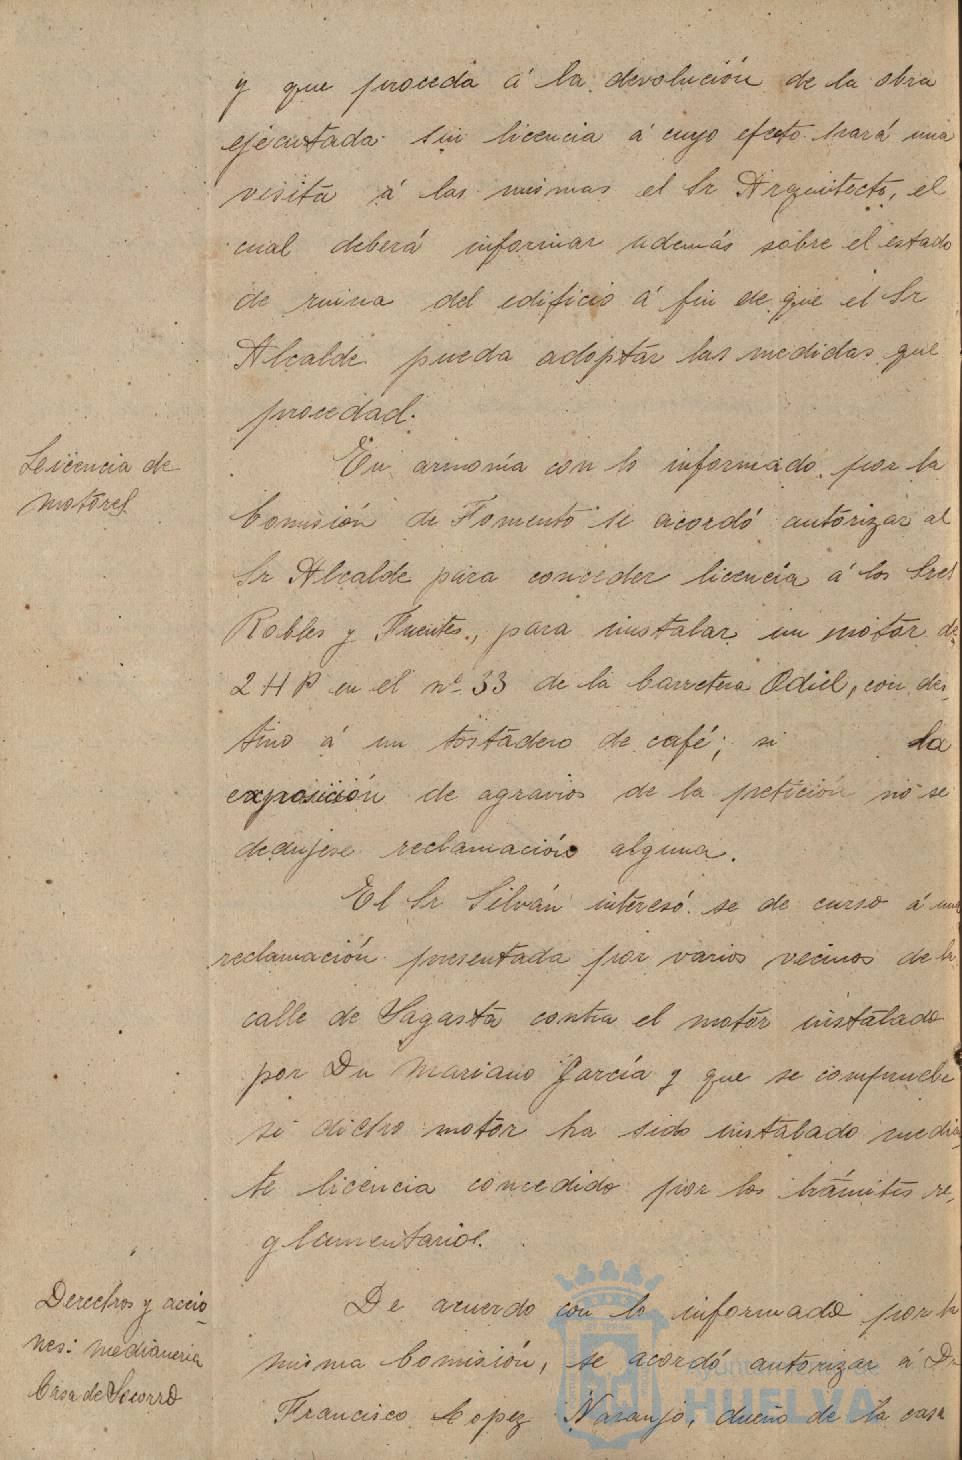 y que proceda á la devolución de la obra
ejecutada sin licencia á cuyo efecto hará una
visita á las mismas el Sr Arquitecto, el
cual deberá informar además sobre el estado
de ruina del edificio á fin de que el Sr
Alcalde pueda adoptar las medidas que
procedad.
Leicencia de
motores
En armonía con lo informado por la
Comisión de Fomento se acordó autorizar al
Sr Alcalde para conceder licencia á los Sres
Robles y Fuentes, para instalar un motor de
2 HP en el nº 33 de la Carretera Odiel, con des-
tino á un tostadero de café; si la
exposición de agravios de la petición no se
dedujese reclamación alguna.
El Sr Silván interesó se de curso á una
reclamación presentada por varios vecinos de la
calle de Sagasta contra el motor instalado
por Dn Mariano García y que se compruebe
si dicho motor ha sido instalado median
te licencia concedido por los trámites re-
glamentarios.
Derechos y accio
nes: medianeria
Casa de Socorro
De acuerdo con lo informado por la
misma Comisión, se acordó autorizar á Dn
Francisco Lopez Naranjo, dueño de la casa
Ayuntamiento de
HUELVA